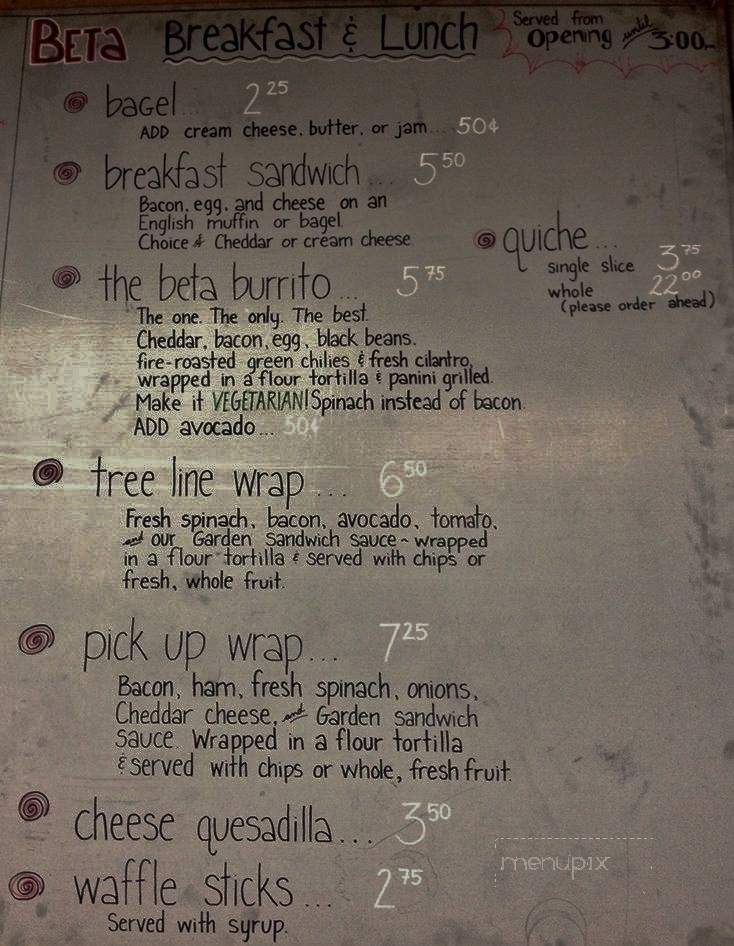 BETA Breakfast & Lunch Served from Opening until 3:00
bagel... 2 25
ADD cream cheese, butter, or jam... 50¢
breakfast sandwich... 5 50
Bacon, egg, and cheese on an
English muffin or bagel.
Choice of Cheddar or cream cheese
the beta burrito... 5 75
The one. The only. The best.
Cheddar, bacon, egg, black beans,
fire-roasted green chilies & fresh cilantro,
wrapped in a flour tortilla & panini grilled.
Make it VEGETARIAN! Spinach instead of bacon.
ADD avocado... 50¢
quiche...
single slice 3 75
whole 22 00
(please order ahead)
tree line wrap... 6 50
Fresh spinach, bacon, avocado, tomato,
and our Garden Sandwich sauce ~ wrapped
in a flour tortilla & served with chips or
fresh, whole fruit.
pick up wrap... 7 25
Bacon, ham, fresh spinach, onions,
Cheddar cheese, and Garden sandwich
sauce. Wrapped in a flour tortilla
& served with chips or whole, fresh fruit.
cheese quesadilla... 3 50
waffle sticks... 2 75
Served with syrup.
menupix